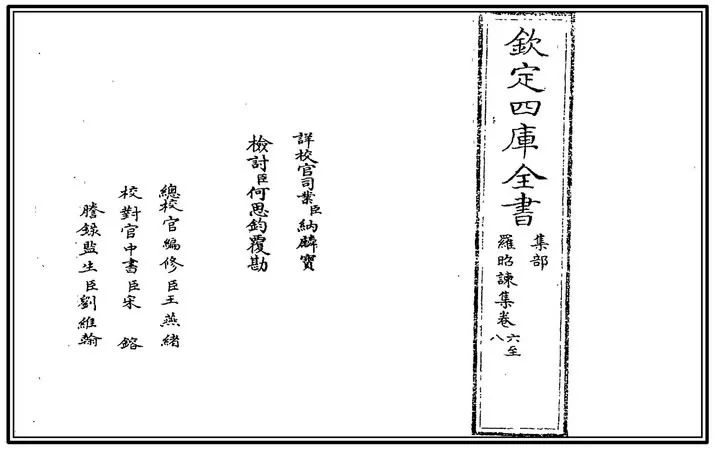 欽定四庫全書
集部
羅昭諫集卷六至八
詳校官司業臣納麟寶
檢討臣何思鈞覆勘
總校官編修臣王燕緒
校對官中書臣宋鎔
謄錄監生臣劉維翰